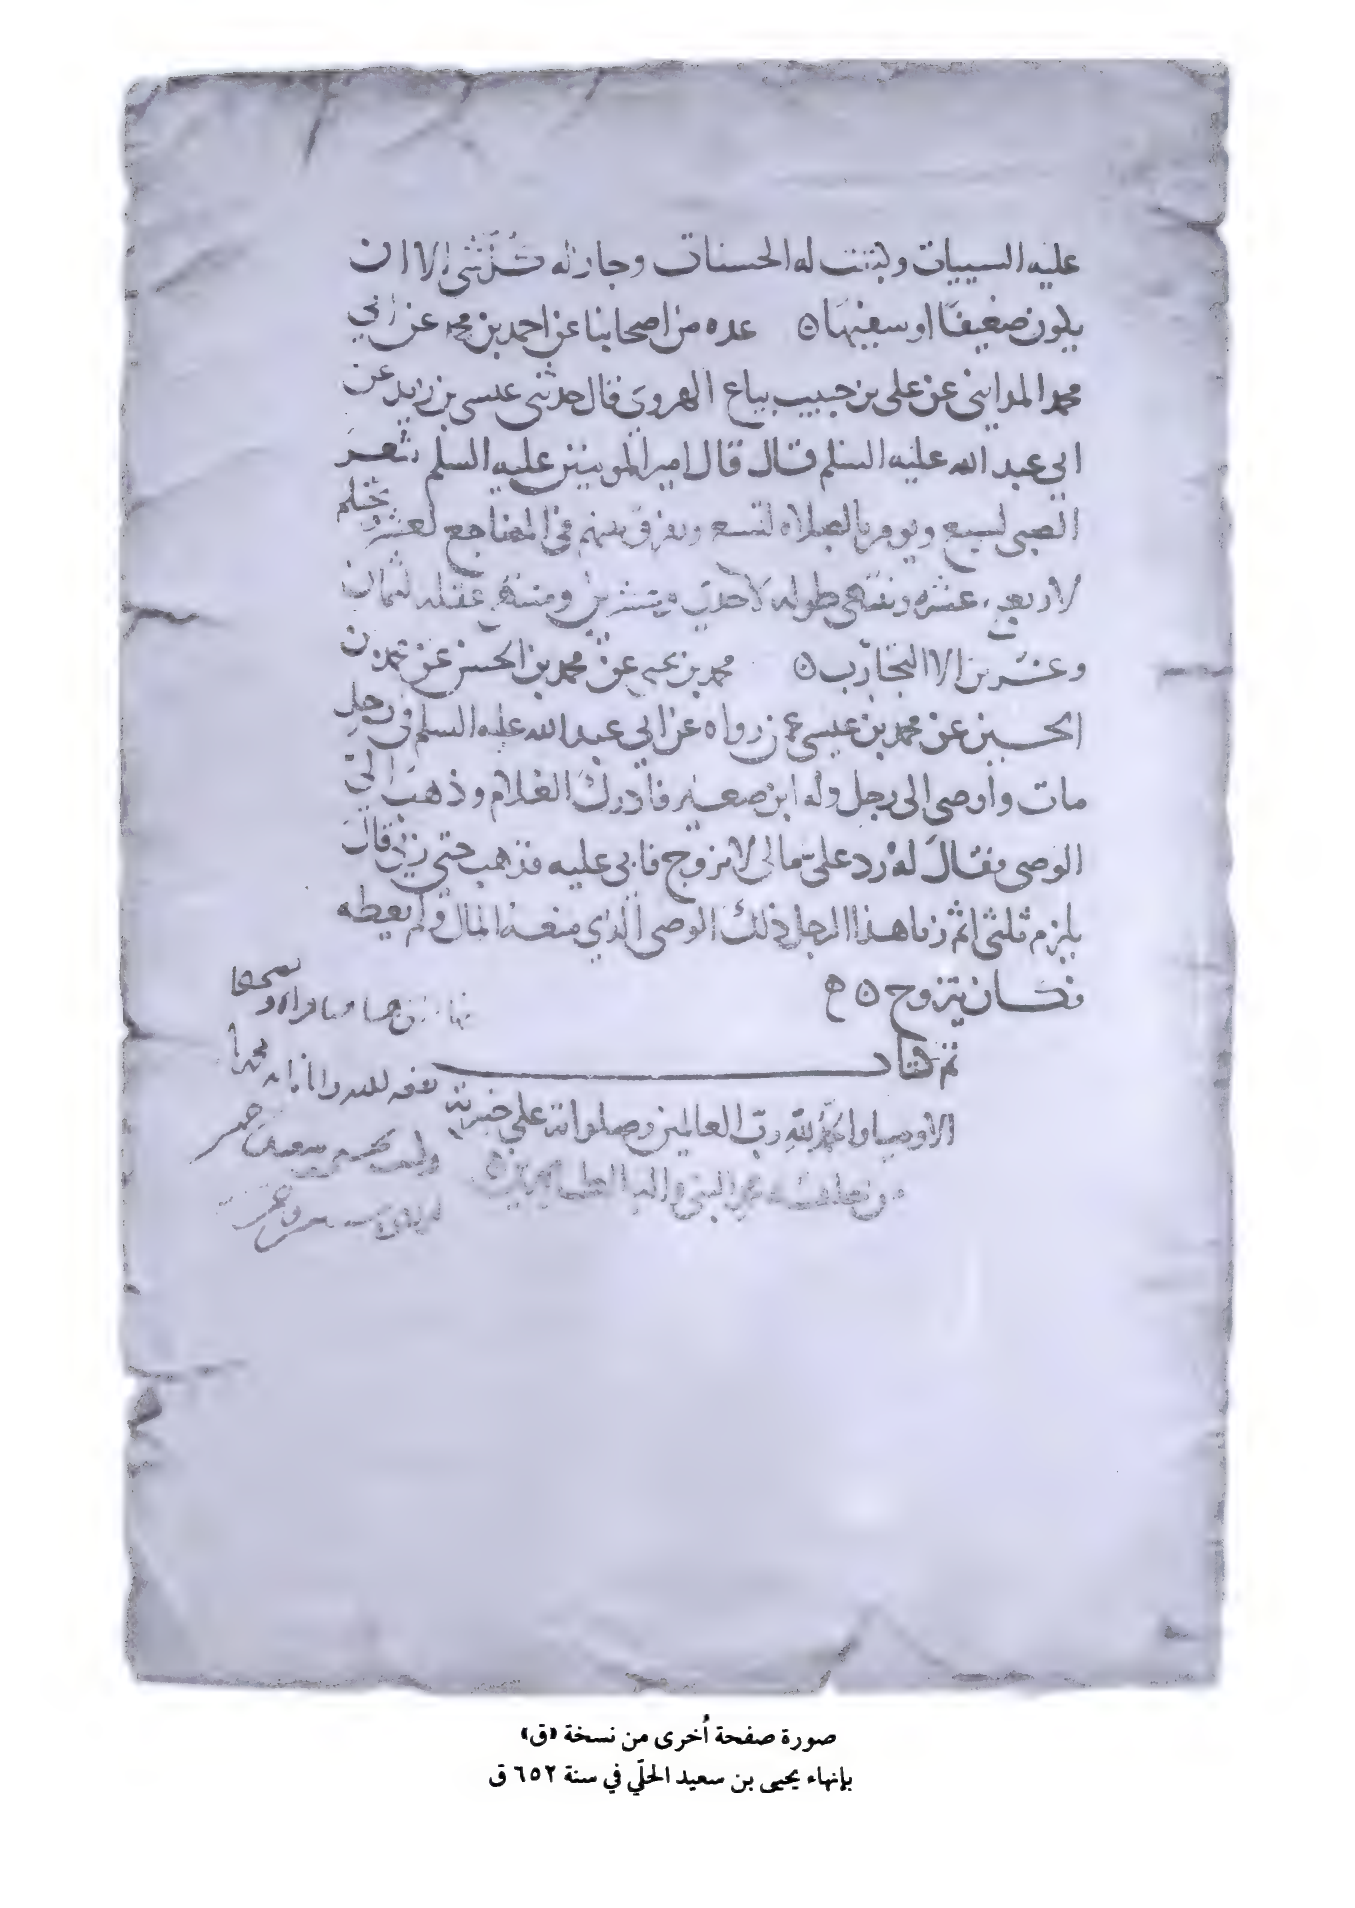 عليه السييات وكتبت له الحسنات وجاز له كل شى الا ان
يكون ضعيفا او سفيها ٥ عده من اصحابنا عن احمد بن محمد عن ابي
محمد المدايني عن علي بن حبيب بياع الهروى قال حدثنى عيسى بن زيد عن
ابى عبد الله عليه السلم قال قال امير المومنين عليه السلم يثغر
الصبى لسبع ويومر بالصلاه لتسع ويفرق بينهم في المضاجع لعشر ويحتلم
لاربع عشره وينتهى طوله لاحدى وعشرين ومنتهى عقله لثمان
وعشرين الا التجارب ٥ محمد بن يحيى عن محمد بن الحسن عن محمد بن
الحسين عن محمد بن عيسى عمن رواه عن ابي عبد الله عليه السلم في رجل
مات واوصى الى رجل وله ابن صغير فادرك الغلام وذهب الى
الوصى فقال له رد على مالى لاتزوج فابى عليه فذهب حتى زنى قال
يلزم ثلثى اثم زنا هذا الرجل ذلك الوصى الذي منعه المال ولم يعطه
فكان يتزوج ٥ ه
تم كتاب
الاوصيا والحمد لله رب العالمين وصلواته على خيرته
من خلقه محمد النبي واله
يحيى بن سعيد
صورة صفحة أُخرى من نسخة «ق»
بإنهاء يحيى بن سعيد الحلّي في سنة ٦٥٢ ق